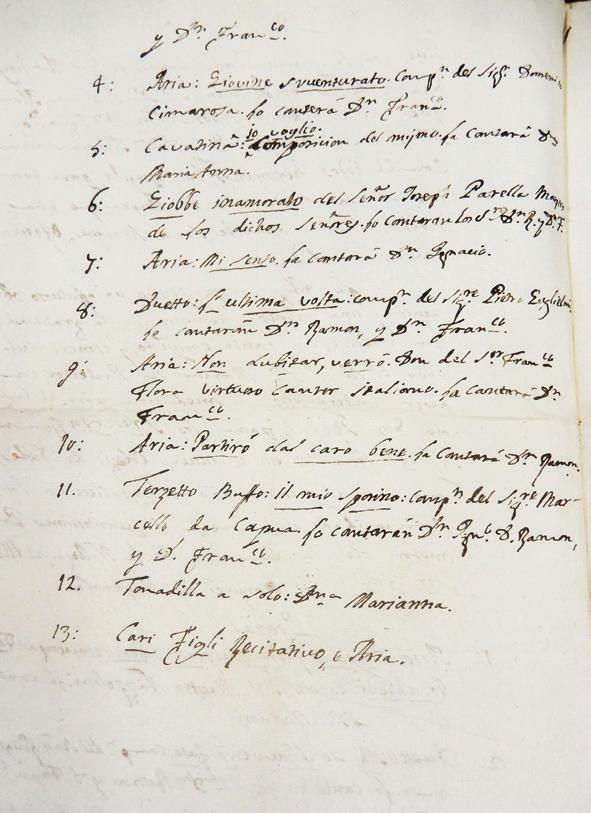 y Dn. Franco.
4: Aria: Giovine sventurato. Compn. del Sigr. Domenico
Cimarosa. la cantará Dn. Franco.
io voglio.
5: Cavatina: Composicion del mismo. la Cantará Da.
Maria Anna.
6: Giobbe inamorato del Señor Joseph Parella
de los dichos Señores. lo Cantaran los Srs. Dn. R. y Dn. F.
7: Aria: Mi sento. la cantará Dn. Ignacio.
8: Duetto: l'ultima volta: compn. del Sigre. Pietro Guglielmi
le cantarán Dn. Ramon, y Dn. Franco.
9: Aria: Non dubitar, verró. Don del Sor. Franco
Flora virtuoso Cantor italiano. la Cantará Dn.
Franco.
10: Aria: Partiró dal caro bene. la Cantará Dn. Ramon.
11. Terzetto Buffo: il mio sposino: Compn. del Sigre. Mar-
cello da Capua. lo cantarán Dn. Igno. D. Ramon,
y D. Franco.
12. Tonadilla a solo: Dna Marianna.
13: Cari Figli Recitativo, e Aria.